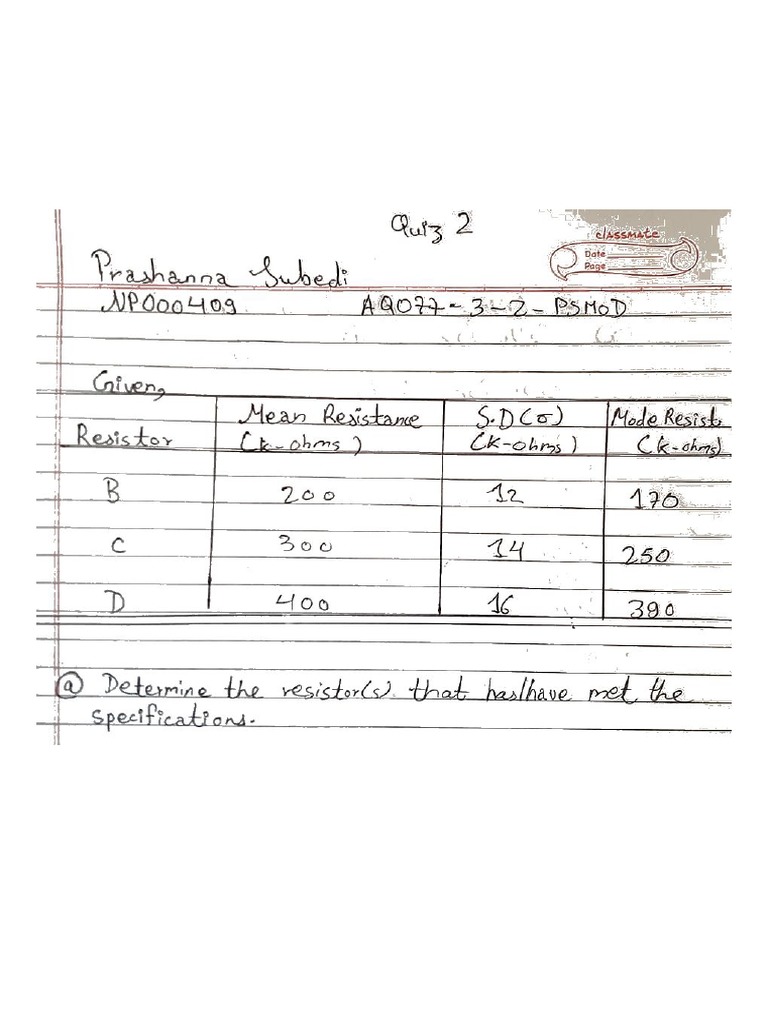 Quiz 2
classmate
Date
Page
Prashanna Subedi
NP000409 AQ077-3-2-PSMOD
Given,
Resistor Mean Resistance (k-ohms) S.D(σ) (k-ohms) Mode Resist. (k-ohms)
B 200 12 170
C 300 14 250
D 400 16 390
(a) Determine the resistor(s) that has/have met the
specifications.